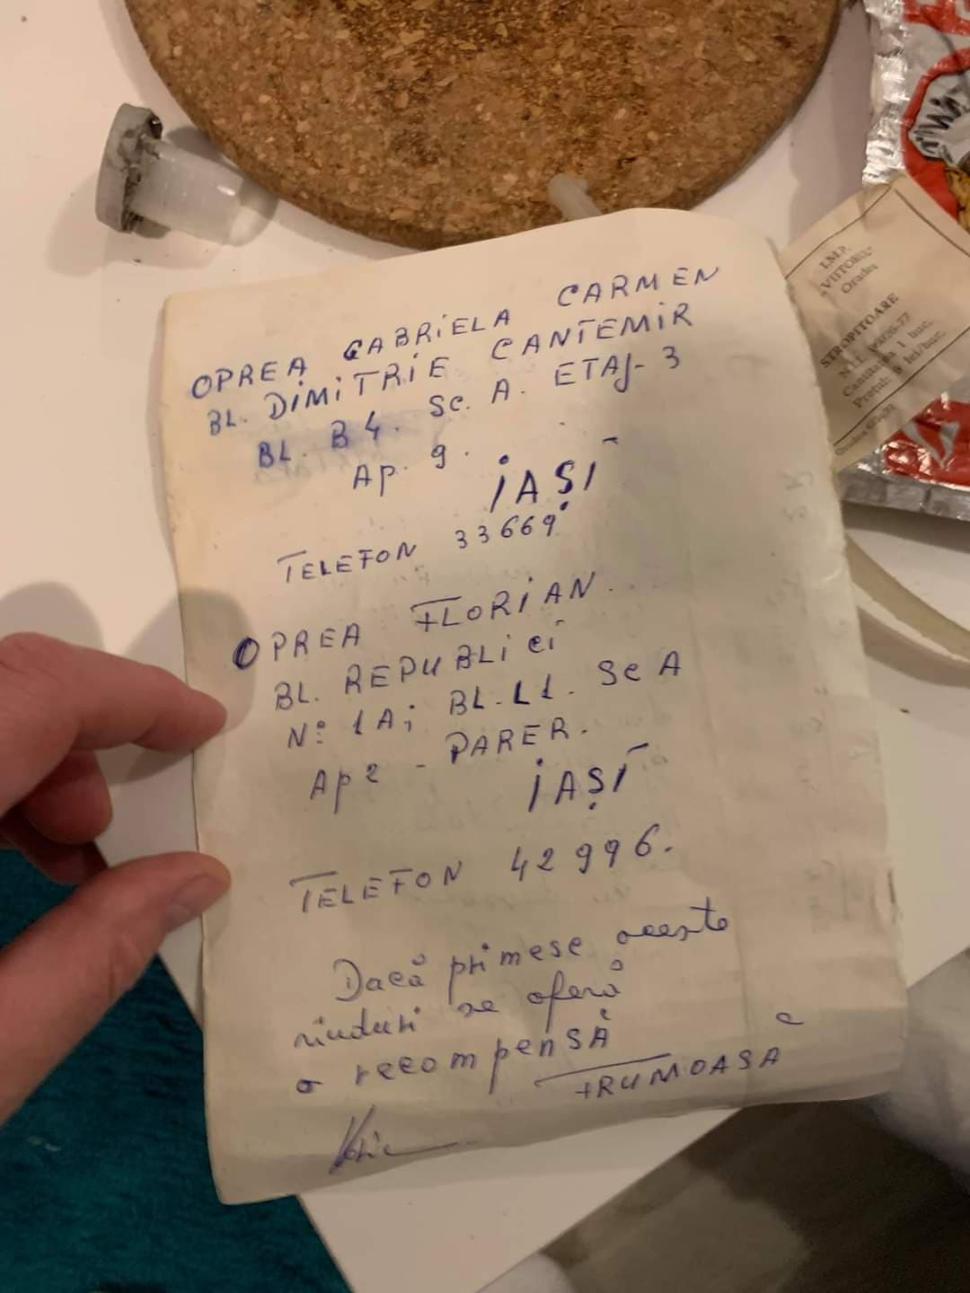 OPREA GABRIELA CARMEN
BL. DIMITRIE CANTEMIR
BL. B4. Sc. A. ETAJ-3
Ap. 9.
IAȘI
TELEFON 33669
OPREA FLORIAN.
BL. REPUBLICI
N: 1A; BL. L1. Sc A
Ap 2 - PARER.
IAȘI
TELEFON 42996.
Dacă primesc aceste
rinduri se oferă
o recompensă
FRUMOASĂ
I.M.P.
"VIITORUL"
Oradea
STROPITOARE
Cantitatea 1 buc.